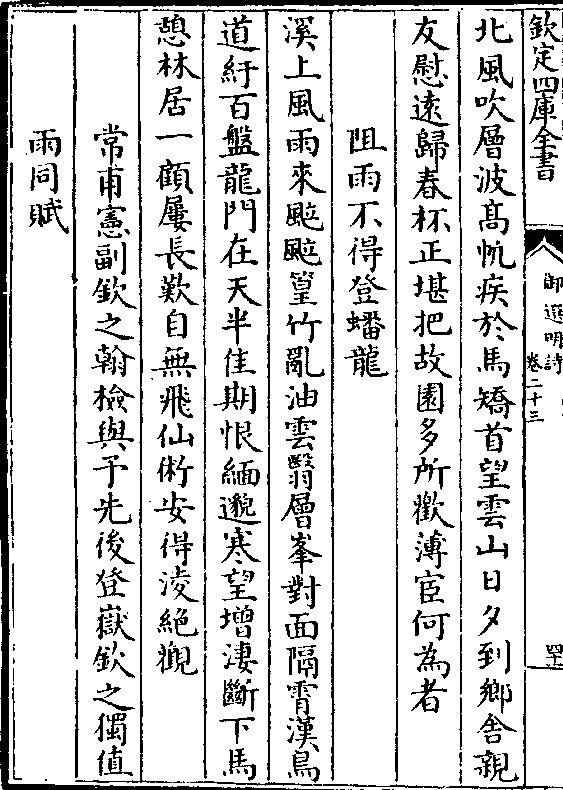 欽定四庫全書
御選明詩
卷二十三
北風吹層波高帆疾於馬矯首望雲山日夕到鄉舍親
友慰遠歸春杯正堪把故園多所歡薄宦何為者
阻雨不得登蟠龍
溪上風雨來颭颭篁竹亂油雲翳層峯對面隔霄漢鳥
道紆百盤龍門在天半佳期恨緬邈寒望增淒斷下馬
憩林居一顧屢長歎自無飛仙術安得淩絕觀
常甫憲副欽之翰檢與予先後登嶽欽之獨值
雨同賦